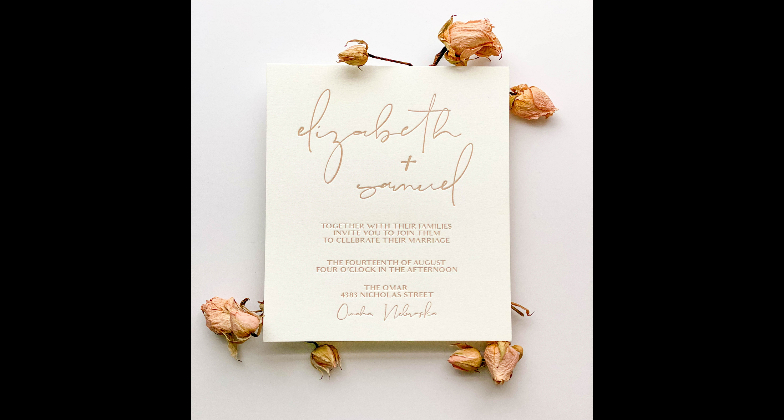 elizabeth
+
samuel
TOGETHER WITH THEIR FAMILIES
INVITE YOU TO JOIN THEM
TO CELEBRATE THEIR MARRIAGE
THE FOURTEENTH OF AUGUST
FOUR O'CLOCK IN THE AFTERNOON
THE OMAR
4383 NICHOLAS STREET
Omaha Nebraska